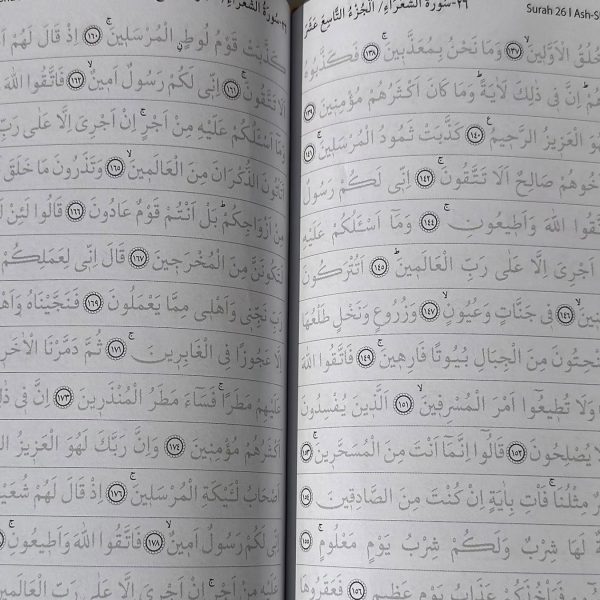 ٢٦-سُورَةُ الشُّعَرَاءِ/ اَلْجُزْءُ التَّاسِعَ عَشَرَ Surah 26 | Ash-S
خُلُقُ الْاَوَّل۪ينَۙ ﴿١٣٧﴾ وَمَا نَحْنُ بِمُعَذَّب۪ينَۚ ﴿١٣٨﴾ فَكَذَّبُوهُ
اِنَّ ف۪ي ذٰلِكَ لَاٰيَةًۜ وَمَا كَانَ اَكْثَرُهُمْ مُؤْمِن۪ينَ ﴿١٣٩﴾
الْعَز۪يزُ الرَّح۪يمُ۟ ﴿١٤٠﴾ كَذَّبَتْ ثَمُودُ الْمُرْسَل۪ينَۚ ﴿١٤١﴾
صَالِحٌ اَلَا تَتَّقُونَۚ ﴿١٤٢﴾ اِنّ۪ي لَكُمْ رَسُولٌ
اللّٰهَ وَاَط۪يعُونِۚ ﴿١٤٤﴾ وَمَٓا اَسْـَٔلُكُمْ عَلَيْهِ
اَجْرِيَ اِلَّا عَلٰى رَبِّ الْعَالَم۪ينَۜ ﴿١٤٥﴾ اَتُتْرَكُونَ
﴿١٤٦﴾ ف۪ي جَنَّاتٍ وَعُيُونٍۙ ﴿١٤٧﴾ وَزُرُوعٍ وَنَخْلٍ طَلْعُهَا
مِنَ الْجِبَالِ بُيُوتًا فَارِه۪ينَۚ ﴿١٤٩﴾ فَاتَّقُوا اللّٰهَ
وَلَا تُط۪يعُٓوا اَمْرَ الْمُسْرِف۪ينَۙ ﴿١٥١﴾ اَلَّذ۪ينَ يُفْسِدُونَ
يُصْلِحُونَ ﴿١٥٢﴾ قَالُٓوا اِنَّمَٓا اَنْتَ مِنَ الْمُسَحَّر۪ينَۚ ﴿١٥٣﴾
مِثْلُنَاۚ فَأْتِ بِاٰيَةٍ اِنْ كُنْتَ مِنَ الصَّادِق۪ينَ ﴿١٥٤﴾
لَهَا شِرْبٌ وَلَكُمْ شِرْبُ يَوْمٍ مَعْلُومٍۚ ﴿١٥٥﴾
فَيَأْخُذَكُمْ عَذَابُ يَوْمٍ عَظ۪يمٍ ﴿١٥٦﴾ فَعَقَرُوهَا
٢٦-سُورَةُ الشُّعَرَاءِ/ اَلْجُزْءُ التَّاسِعَ عَشَرَ
كَذَّبَتْ قَوْمُ لُوطٍۨ الْمُرْسَل۪ينَۚ ﴿١٦٠﴾ اِذْ قَالَ لَهُمْ
اَلَا تَتَّقُونَۚ ﴿١٦١﴾ اِنّ۪ي لَكُمْ رَسُولٌ اَم۪ينٌۙ ﴿١٦٢﴾ فَاتَّقُوا اللّٰهَ
وَمَٓا اَسْـَٔلُكُمْ عَلَيْهِ مِنْ اَجْرٍۚ اِنْ اَجْرِيَ اِلَّا عَلٰى رَبِّ
اَتَأْتُونَ الذُّكْرَانَ مِنَ الْعَالَم۪ينَۙ ﴿١٦٥﴾ وَتَذَرُونَ مَا خَلَقَ
مِنْ اَزْوَاجِكُمْۜ بَلْ اَنْتُمْ قَوْمٌ عَادُونَ ﴿١٦٦﴾ قَالُوا لَئِنْ
لَتَكُونَنَّ مِنَ الْمُخْرَج۪ينَ ﴿١٦٧﴾ قَالَ اِنّ۪ي لِعَمَلِكُمْ
رَبِّ نَجِّن۪ي وَاَهْل۪ي مِمَّا يَعْمَلُونَ ﴿١٦٩﴾ فَنَجَّيْنَاهُ
اِلَّا عَجُوزًا فِي الْغَابِر۪ينَۚ ﴿١٧١﴾ ثُمَّ دَمَّرْنَا
عَلَيْهِمْ مَطَرًاۚ فَسَٓاءَ مَطَرُ الْمُنْذَر۪ينَ ﴿١٧٣﴾ اِنَّ ف۪ي
اَكْثَرُهُمْ مُؤْمِن۪ينَ ﴿١٧٤﴾ وَاِنَّ رَبَّكَ لَهُوَ الْعَز۪يزُ
اَصْحَابُ لْـَٔيْكَةِ الْمُرْسَل۪ينَۚ ﴿١٧٦﴾ اِذْ قَالَ لَهُمْ
اِنّ۪ي لَكُمْ رَسُولٌ اَم۪ينٌۙ ﴿١٧٨﴾ فَاتَّقُوا اللّٰهَ وَاَط۪يعُونِۚ
عَلَيْهِ مِنْ اَجْرٍۚ اِنْ اَجْرِيَ اِلَّا عَلٰى رَبِّ